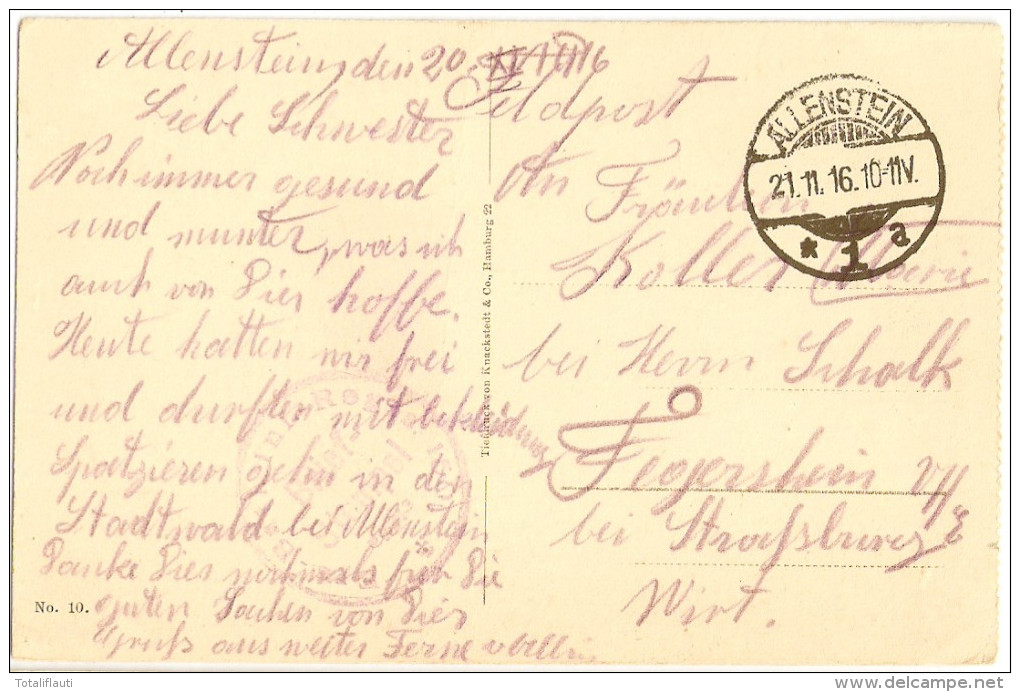 Allenstein, den 20. XI. 16
Liebe Schwester
Noch immer gesund
und munter, was ich
auch von Dier hoffe.
Heute hatten mir frei
und durften mit bekleidung
Spatzieren gehn in den
Stadtwald bei Allenstein
Danke Dier nochmals für Die
guten Sachen von Dier
Gruß aus weiter Ferne
No. 10.
Tiefdruck von Knackstedt & Co., Hamburg 22
Feldpost
An Fräulein
Koller Marie
bei Herrn Schalk
Fegersheim
bei Straßburg E
Wirt.
ALLENSTEIN
21.11.16.10-11V.
* 1 a
Totalflauti
delcampe.net